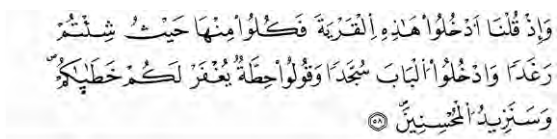 وَإِذْ قُلْنَا اَدْخُلُواْ هَٰذِهِ اِلْقَرْيَةَ فَكُلُواْ مِنْهَا حَيْثُ شِئْتُمْ
رَغَدٗا وَادْخُلُواْ اُلْبَابَ سُجَّدٗا وَقُولُواْ حِطَّةٞ يُغْفَرْ لَكُمْ خَطَٰيَٰكُمْۖ
وَسَنَزِيدُ اُلْمُحْسِنِينَۖ ٥٨